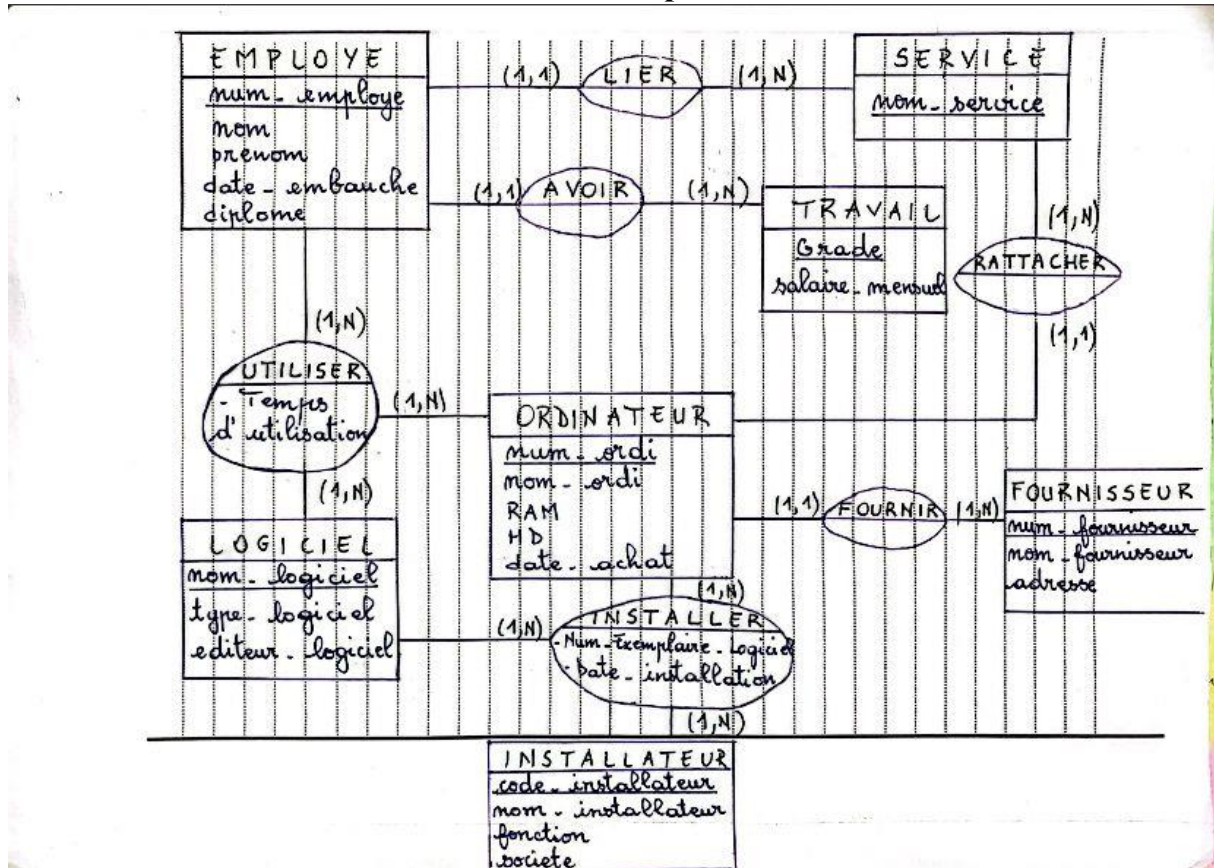 EMPLOYE
num_employe
nom
prenom
date_embauche
diplome
(1,1)
LIER
(1,N)
SERVICE
nom_service
(1,1)
AVOIR
(1,N)
TRAVAIL
Grade
salaire_mensuel
(1,N)
RATTACHER
(1,1)
(1,N)
UTILISER
- Temps
d'utilisation
(1,N)
(1,N)
ORDINATEUR
num_ordi
nom_ordi
RAM
HD
date_achat
(1,1)
FOURNIR
(1,N)
FOURNISSEUR
num_fournisseur
nom_fournisseur
adresse
LOGICIEL
nom_logiciel
type_logiciel
editeur_logiciel
(1,N)
(1,N)
INSTALLER
-Num_Exemplaire_Logiciel
-Date_installation
(1,N)
INSTALLATEUR
code_installateur
nom_installateur
fonction
societe